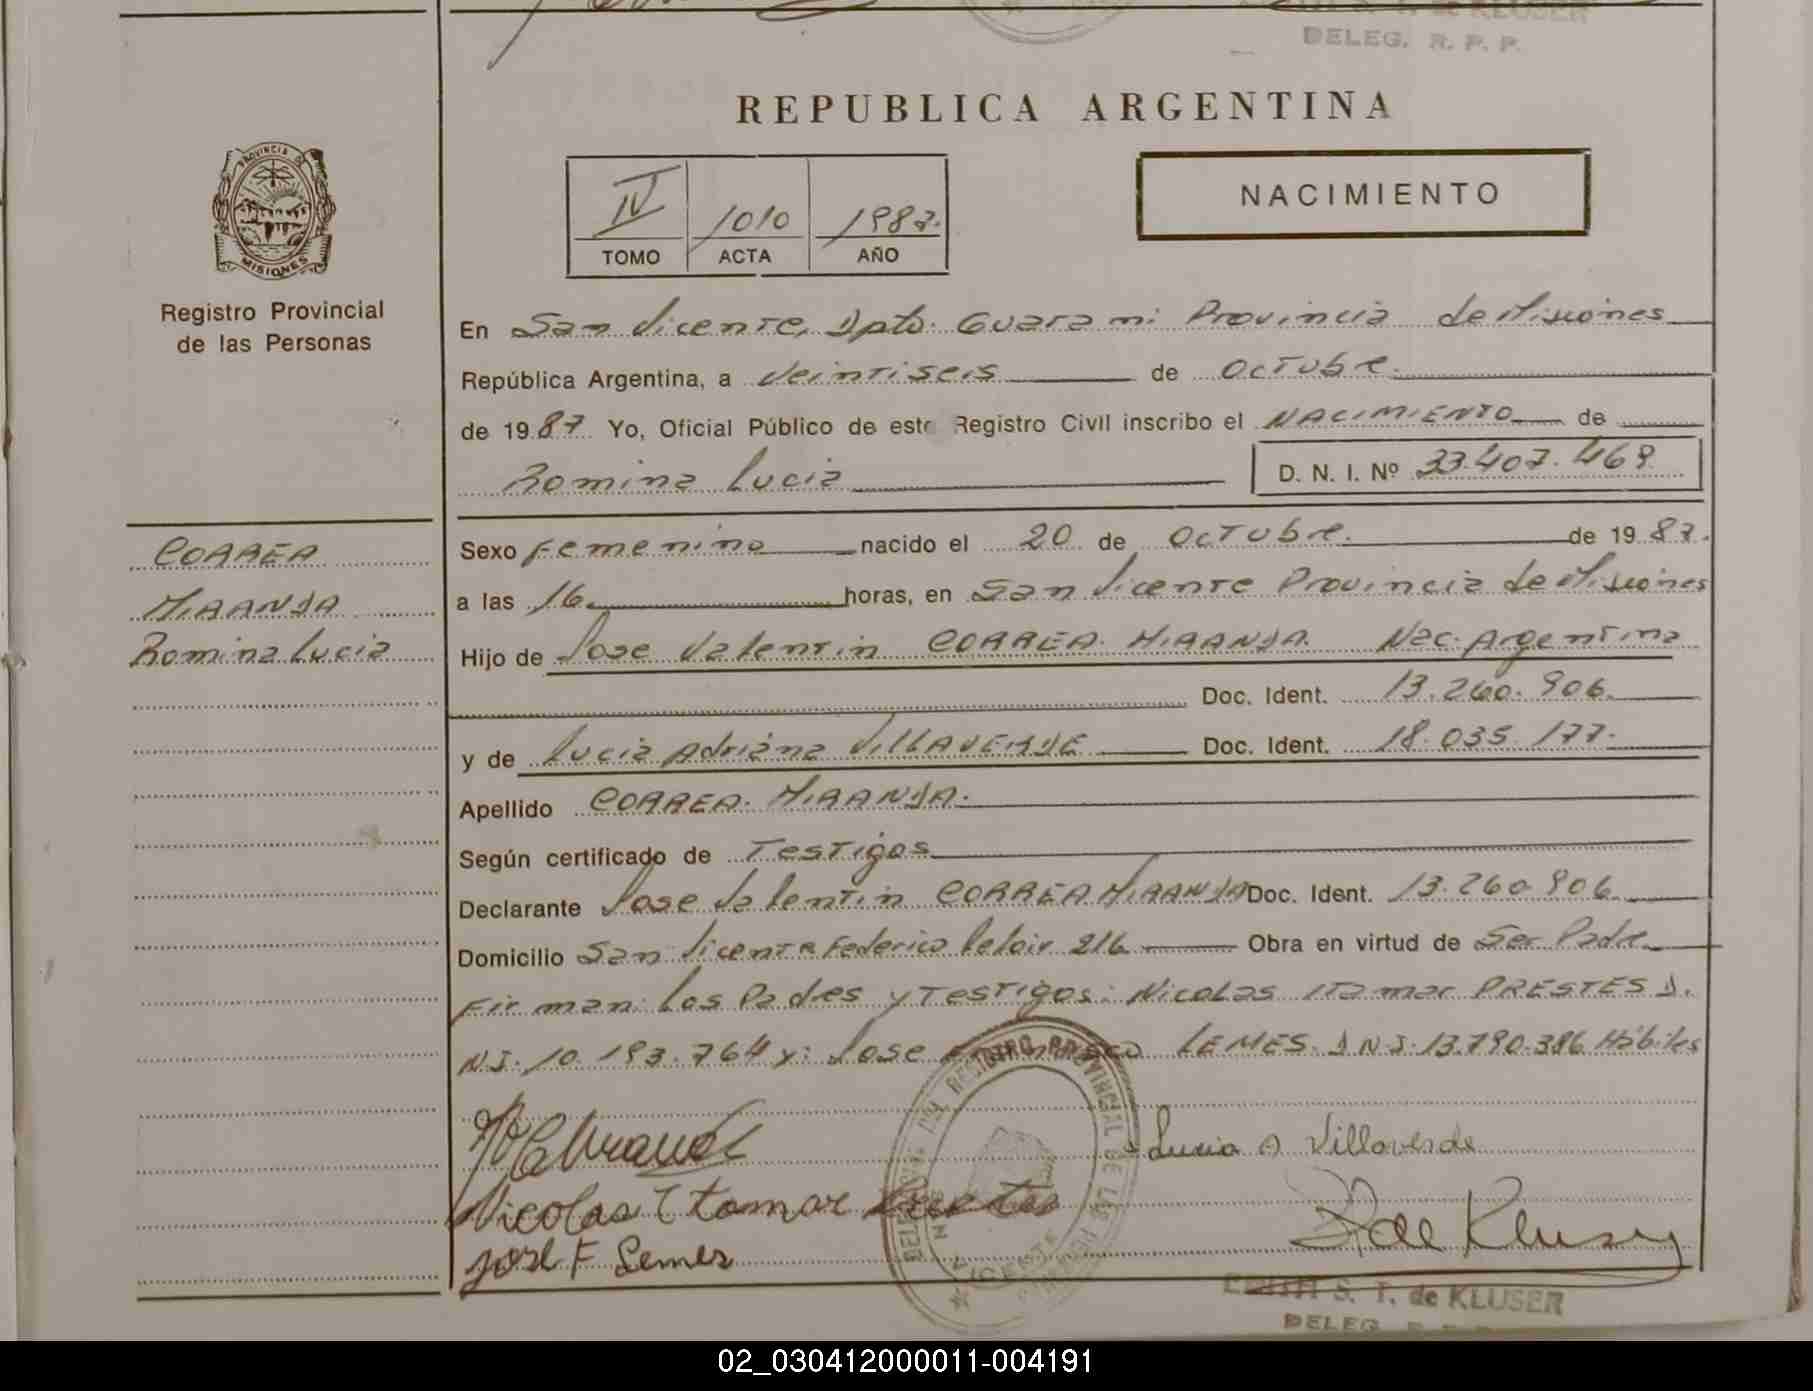 DELEG. R. P. P.
REPUBLICA ARGENTINA
PROVINCIA DE
MISIONES
Registro Provincial
de las Personas
IV 1010 1987.
TOMO ACTA AÑO
NACIMIENTO
En San Vicente, Dpto. Guarani Provincia de Misiones
República Argentina, a Veintiseis de Octubre.
de 1987 Yo, Oficial Público de este Registro Civil inscribo el NACIMIENTO de
Romina Lucia D. N. I. Nº 33.407.469
CORREA
MIRANDA
Romina Lucia
Sexo Femenino nacido el 20 de Octubre. de 1987.
a las 16 horas, en San Vicente Provincia de Misiones
Hijo de Jose Valentin CORREA MIRANDA Nac. Argentina
Doc. Ident. 13.260.906.
y de Lucia Adriana VILLAVERDE Doc. Ident. 18.035.177.
Apellido CORREA MIRANDA.
Según certificado de Testigos
Declarante Jose Valentin CORREA MIRANDA Doc. Ident. 13.260.906
Domicilio San Vicente Federico Leloir 216 Obra en virtud de Ser Padre
Firman: Los Padres y Testigos: Nicolas Itamar PRESTES D.
N.I. 10.193.764 y: Jose Francisco LEMES. D.N.I. 13.790.386 Hábiles
Lucia A Villaverde
Nicolas Itamar Prestes
José F Lemes
REGISTRO PROVINCIAL DE LAS
VICENTE
S. T. de KLUSER
DELEG.
02_030412000011-004191